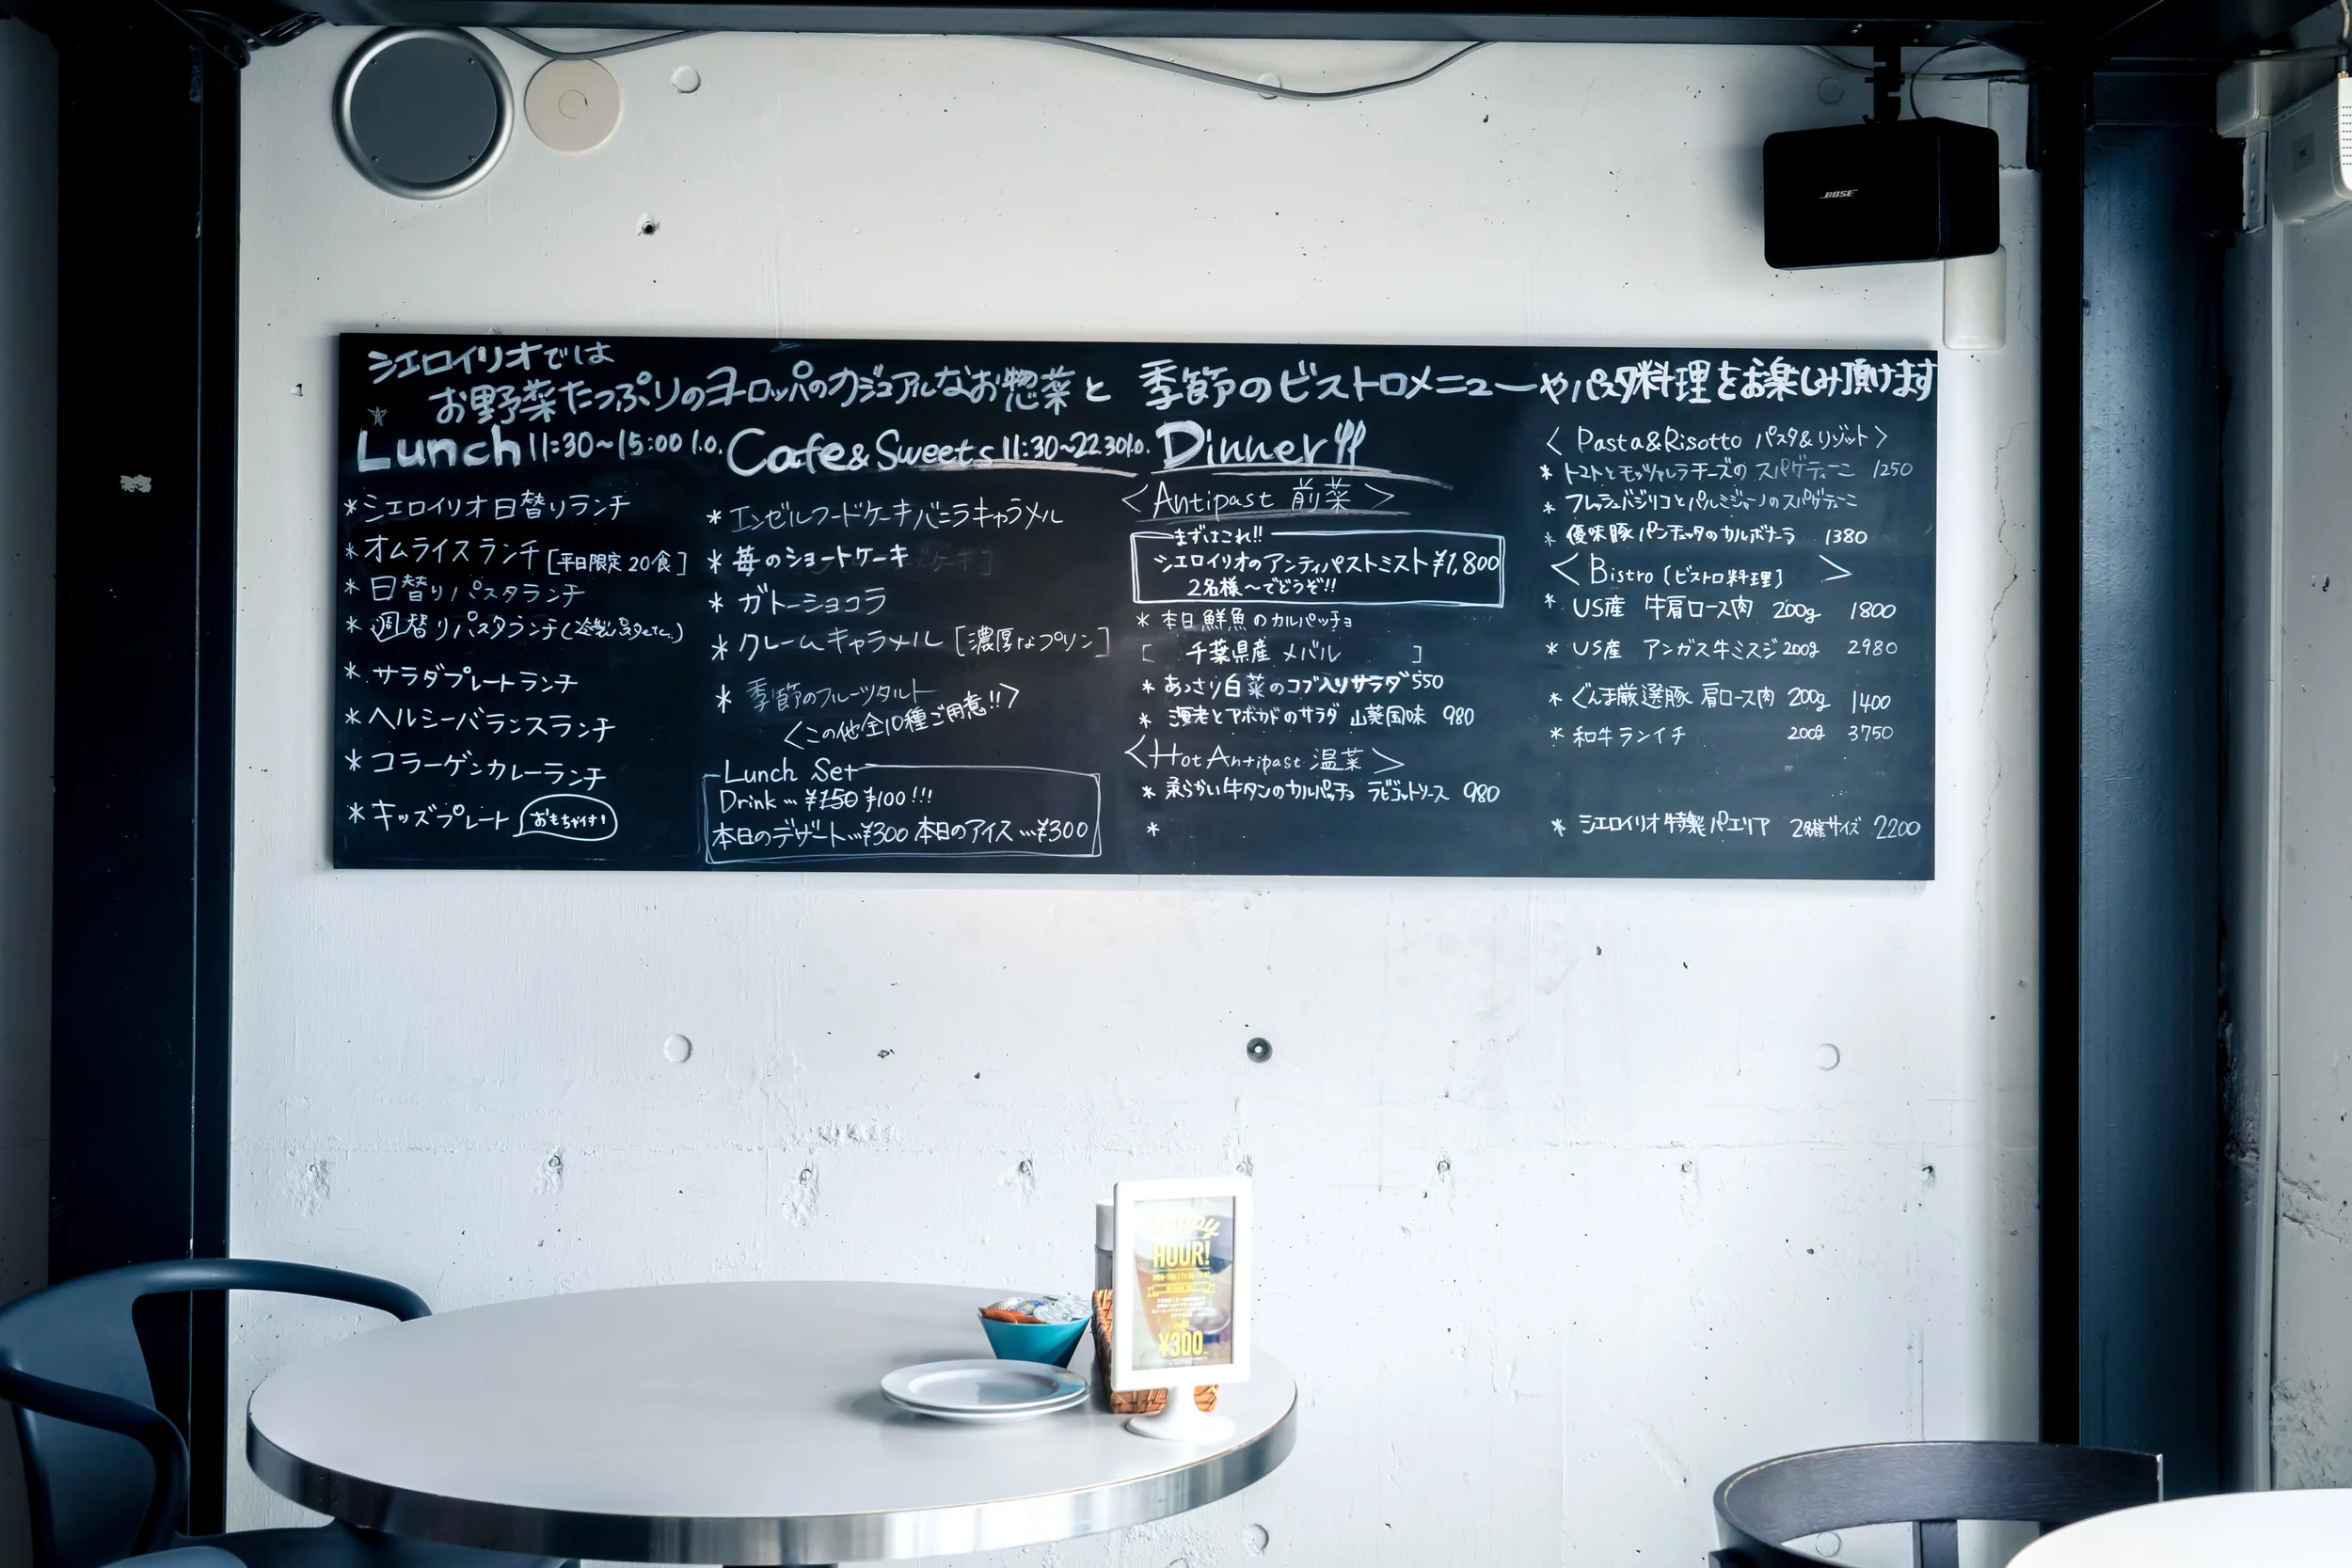 シエロイリオでは
お野菜たっぷりのヨーロッパのカジュアルなお惣菜と 季節のビストロメニューやパスタ料理をお楽しみ頂けます
Lunch 11:30~15:00 l.o.
*シエロイリオ日替りランチ
*オムライスランチ[平日限定20食]
*日替りパスタランチ
*週替りパスタランチ(冷製パスタetc.)
*サラダプレートランチ
*ヘルシーバランスランチ
*コラーゲンカレーランチ
*キッズプレート おもちゃ付!
Cafe & Sweets 11:30~22:30 l.o.
*エンゼルフードケーキバニラキャラメル
*苺のショートケーキ
*ガトーショコラ
*クレームキャラメル[濃厚なプリン]
*季節のフルーツタルト
<この他全10種ご用意!!>
Lunch Set
Drink … ¥150 ¥100!!!
本日のデザート…¥300 本日のアイス…¥300
Dinner
<Antipast 前菜>
まずはこれ!!
シエロイリオのアンティパストミスト ¥1,800
2名様〜でどうぞ!!
*本日鮮魚のカルパッチョ
[ 千葉県産 メバル ]
*あっさり白菜のコブ入りサラダ 550
*海老とアボカドのサラダ 山葵風味 980
<Hot Antipast 温菜>
*柔らかい牛タンのカルパッチョ ラビゴットソース 980
*
<Pasta&Risotto パスタ&リゾット>
*トマトとモッツァレラチーズのスパゲティーニ 1250
*フレッシュバジリコとパルミジャーノのスパゲティーニ
*優味豚パンチェッタのカルボナーラ 1380
<Bistro [ビストロ料理] >
*US産 牛肩ロース肉 200g 1800
*US産 アンガス牛ミスジ 200g 2980
*ぐんま厳選豚 肩ロース肉 200g 1400
*和牛ランイチ 200g 3750
*シエロイリオ特製パエリア 2名様サイズ 2200
BOSE
Happy
HOUR!
¥300